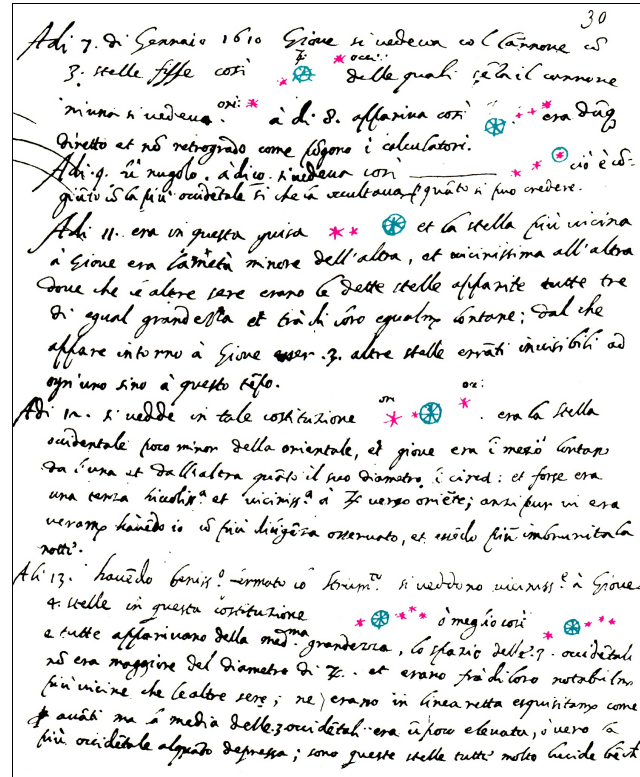 30
Adi 7. di Gennaio 1610 Giove si vedeva col Cannone cō
3. stelle fisse così ori: occ: delle quali sēza il cannone
niuna si vedeva. à dì 8. appariva così ori: era dūq
diretto et nō retrogrado come pōgono i calculatori.
Adi. 9. fù nugolo. à dì 10. si vedeva così ciò è cō-
giūto cō la più occidētale sì che la occultava quāto si può credere.
Adi 11. era in questa guisa et la stella più vicina
à Giove era la metà minore dell'altra, et vicinissima all'altra
dove che le altre sere erano le dette stelle apparite tutte tre
di egual grandezza et trà di loro egualm lontane; dal che
appare intorno à Giove esser .3. altre stelle errāti invisibili ad
ogn'uno sino à questo tēpo.
Adi 12. si vedde in tale costituzione ori occ: era la stella
occidentale poco minor della orientale, et giove era ī mezo lontan
da l'una et dall'altra quāto il suo diametro ī circa: et forse era
una terza piccoliss.a et viciniss.a à ♃ verso oriēte; anzi pur vi era
veram havēdo io cō più diligēza osservato, et essēdo più imbrunita la
notte.
Adi 13. havēdo beniss.o fermato lo strum.to si veddono viciniss.e à Giove
4. stelle in questa costituzione ò meglio così
e tutte apparivano della med.ma grandezza, lo spazio delle .3. occidētali
nō era maggiore del diametro di ♃. et erano frà di loro notabilm
più vicine che le altre sere; ne erano in linea retta esquisitam come
avāti ma la media delle 3 occidētali era ū poco elevata, ò vero la
più occidētale alquāto depressa; sono queste stelle tutte molto lucide bēch